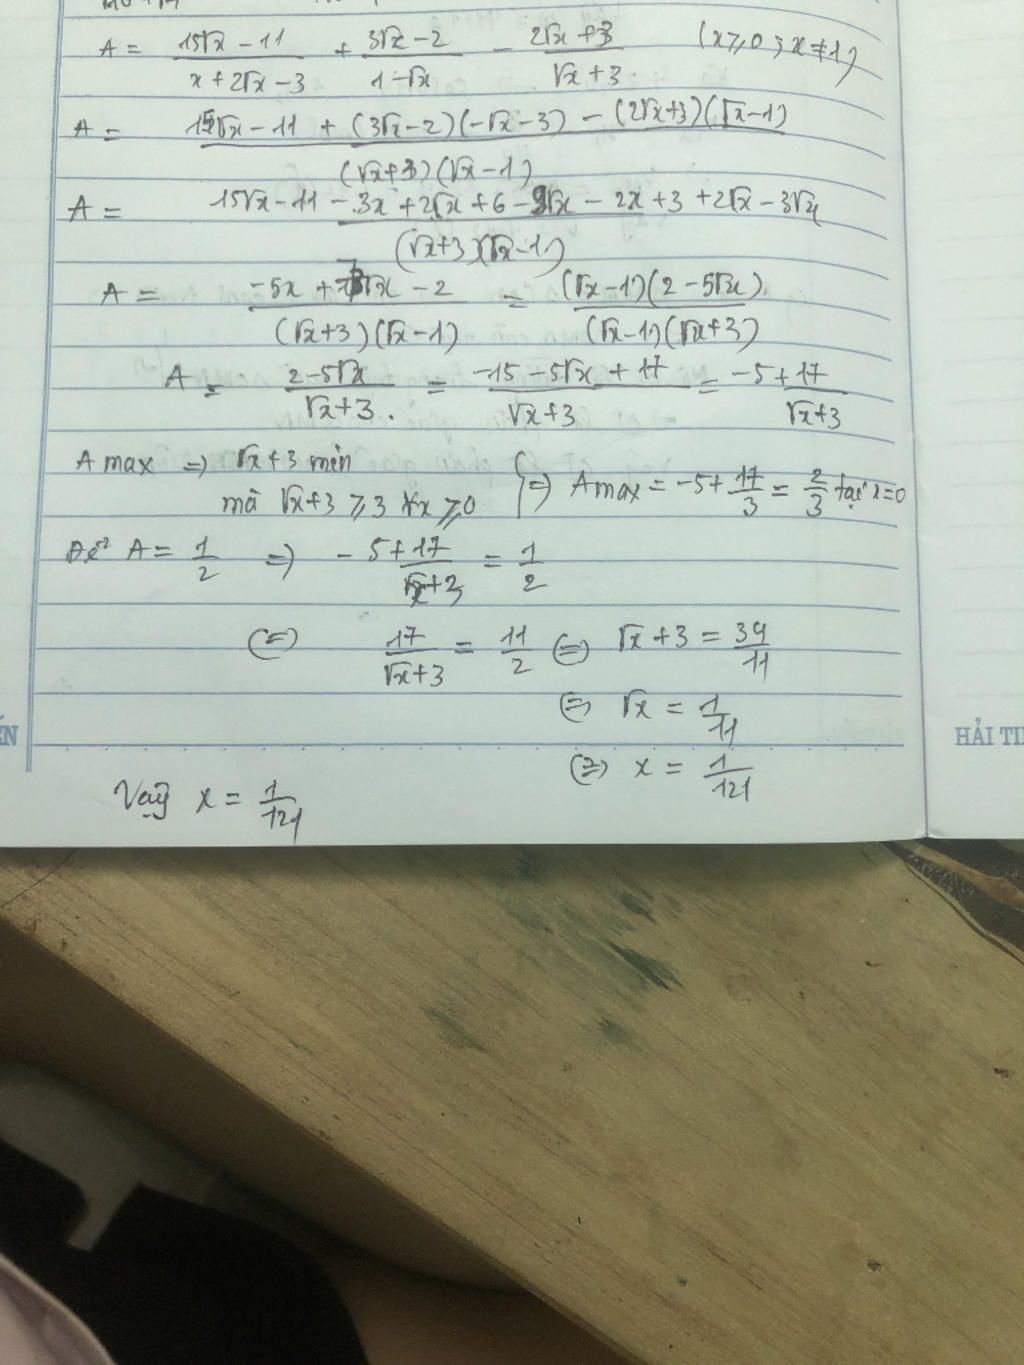 A = (15√x − 11)/(x + 2√x − 3) + (3√x − 2)/(1 − √x) − (2√x + 3)/(√x + 3) (x ⩾ 0 ; x ≠ 1)
A = (15√x − 11 + (3√x − 2)(−√x − 3) − (2√x + 3)(√x − 1))/((√x + 3)(√x − 1))
A = (15√x − 11 − 3x + 2√x + 6 − 9√x − 2x + 3 + 2√x − 3√x)/((√x + 3)(√x − 1))
A = (−5x + 7√x − 2)/((√x + 3)(√x − 1)) = ((√x − 1)(2 − 5√x))/((√x − 1)(√x + 3))
A = (2 − 5√x)/(√x + 3) . = (−15 − 5√x + 17)/(√x + 3) = −5 + 17/(√x + 3)
A max ⇒ √x + 3 min
mà √x + 3 ⩾ 3 ∀x ⩾ 0 } ⇒ A max = −5 + 17/3 = 2/3 tại x = 0
Để A = 1/2 ⇒ −5 + 17/(√x + 3) = 1/2
⇔ 17/(√x + 3) = 11/2 ⇔ √x + 3 = 34/11
⇔ √x = 1/11
⇔ x = 1/121
Vậy x = 1/121
ẾN
HẢI TI